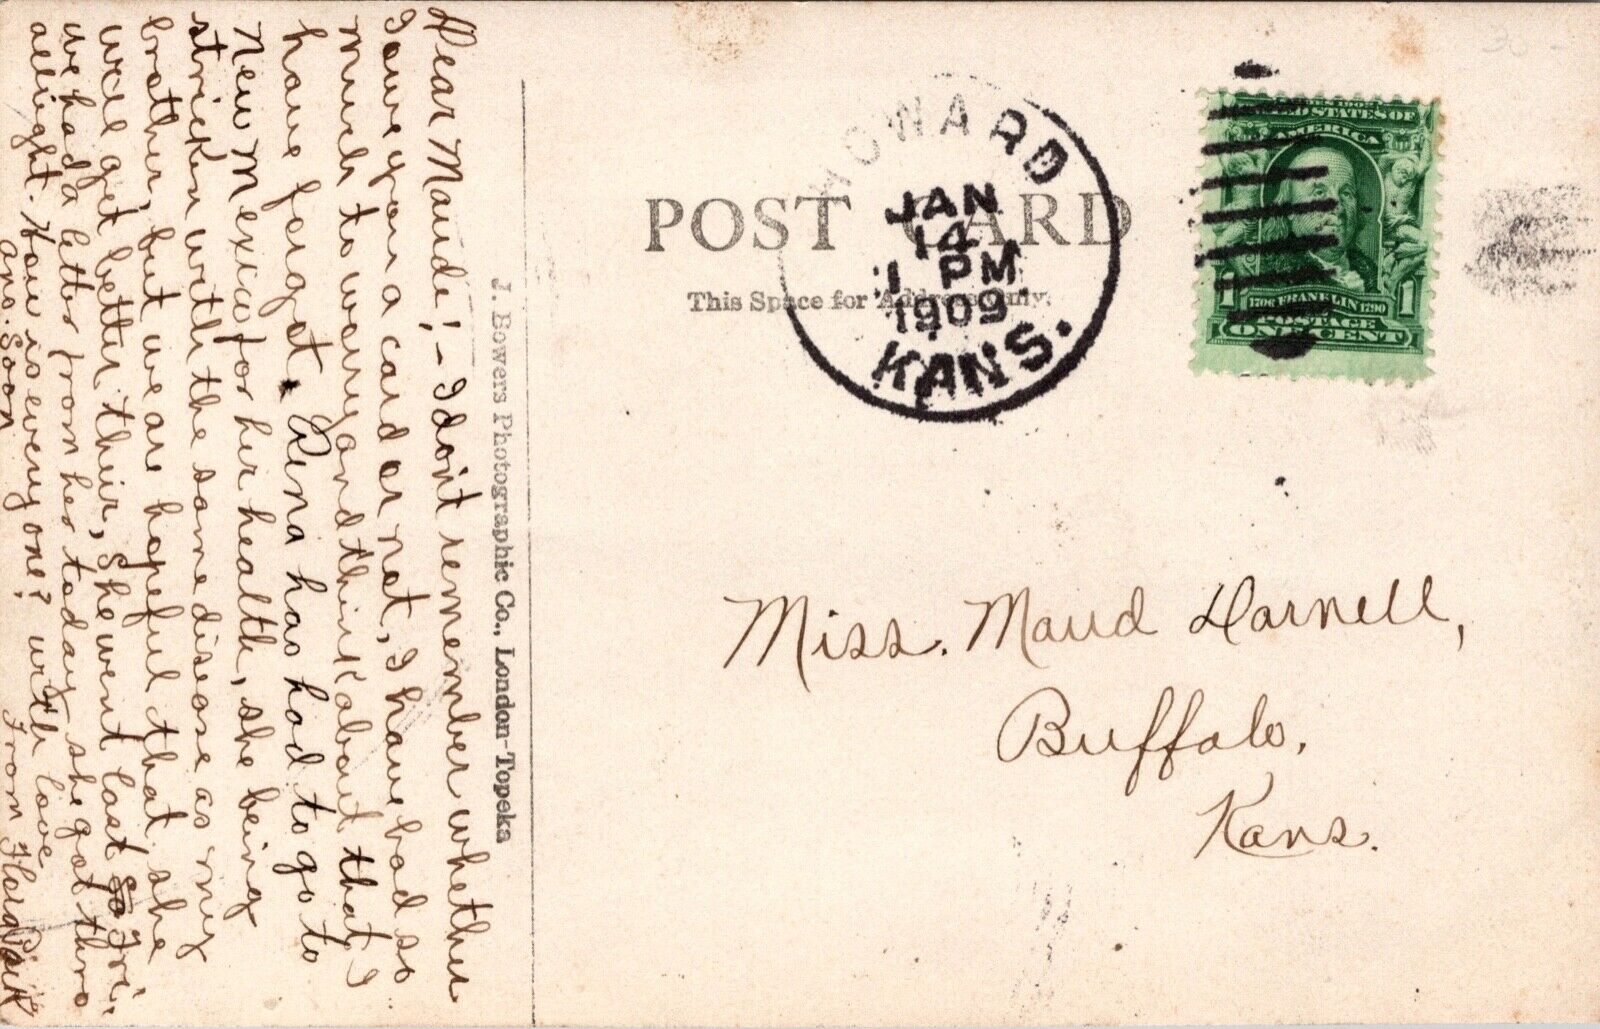 Dear Maude! - I don't remember whether
I owe you a card or not, I have had so
much to worry and think about that I
have forgot. Rena has had to go to
New Mexico for her health, she being
stricken with the same disease as my
brother, but we are hopeful that she
will get better their, she went last Fri.
we had a letter from her today she got thro
allright. How is everyone? with love
Ans. Soon From
J. Bowers Photographic Co., London-Topeka
POST CARD
This Space for Address Only.
HOWARD
JAN
14
1 PM
1909
KANS.
SERIES 1902
UNITED STATES OF
AMERICA
1706 FRANKLIN 1790
1 POSTAGE 1
ONE CENT
Miss. Maud Darnell,
Buffalo,
Kans.